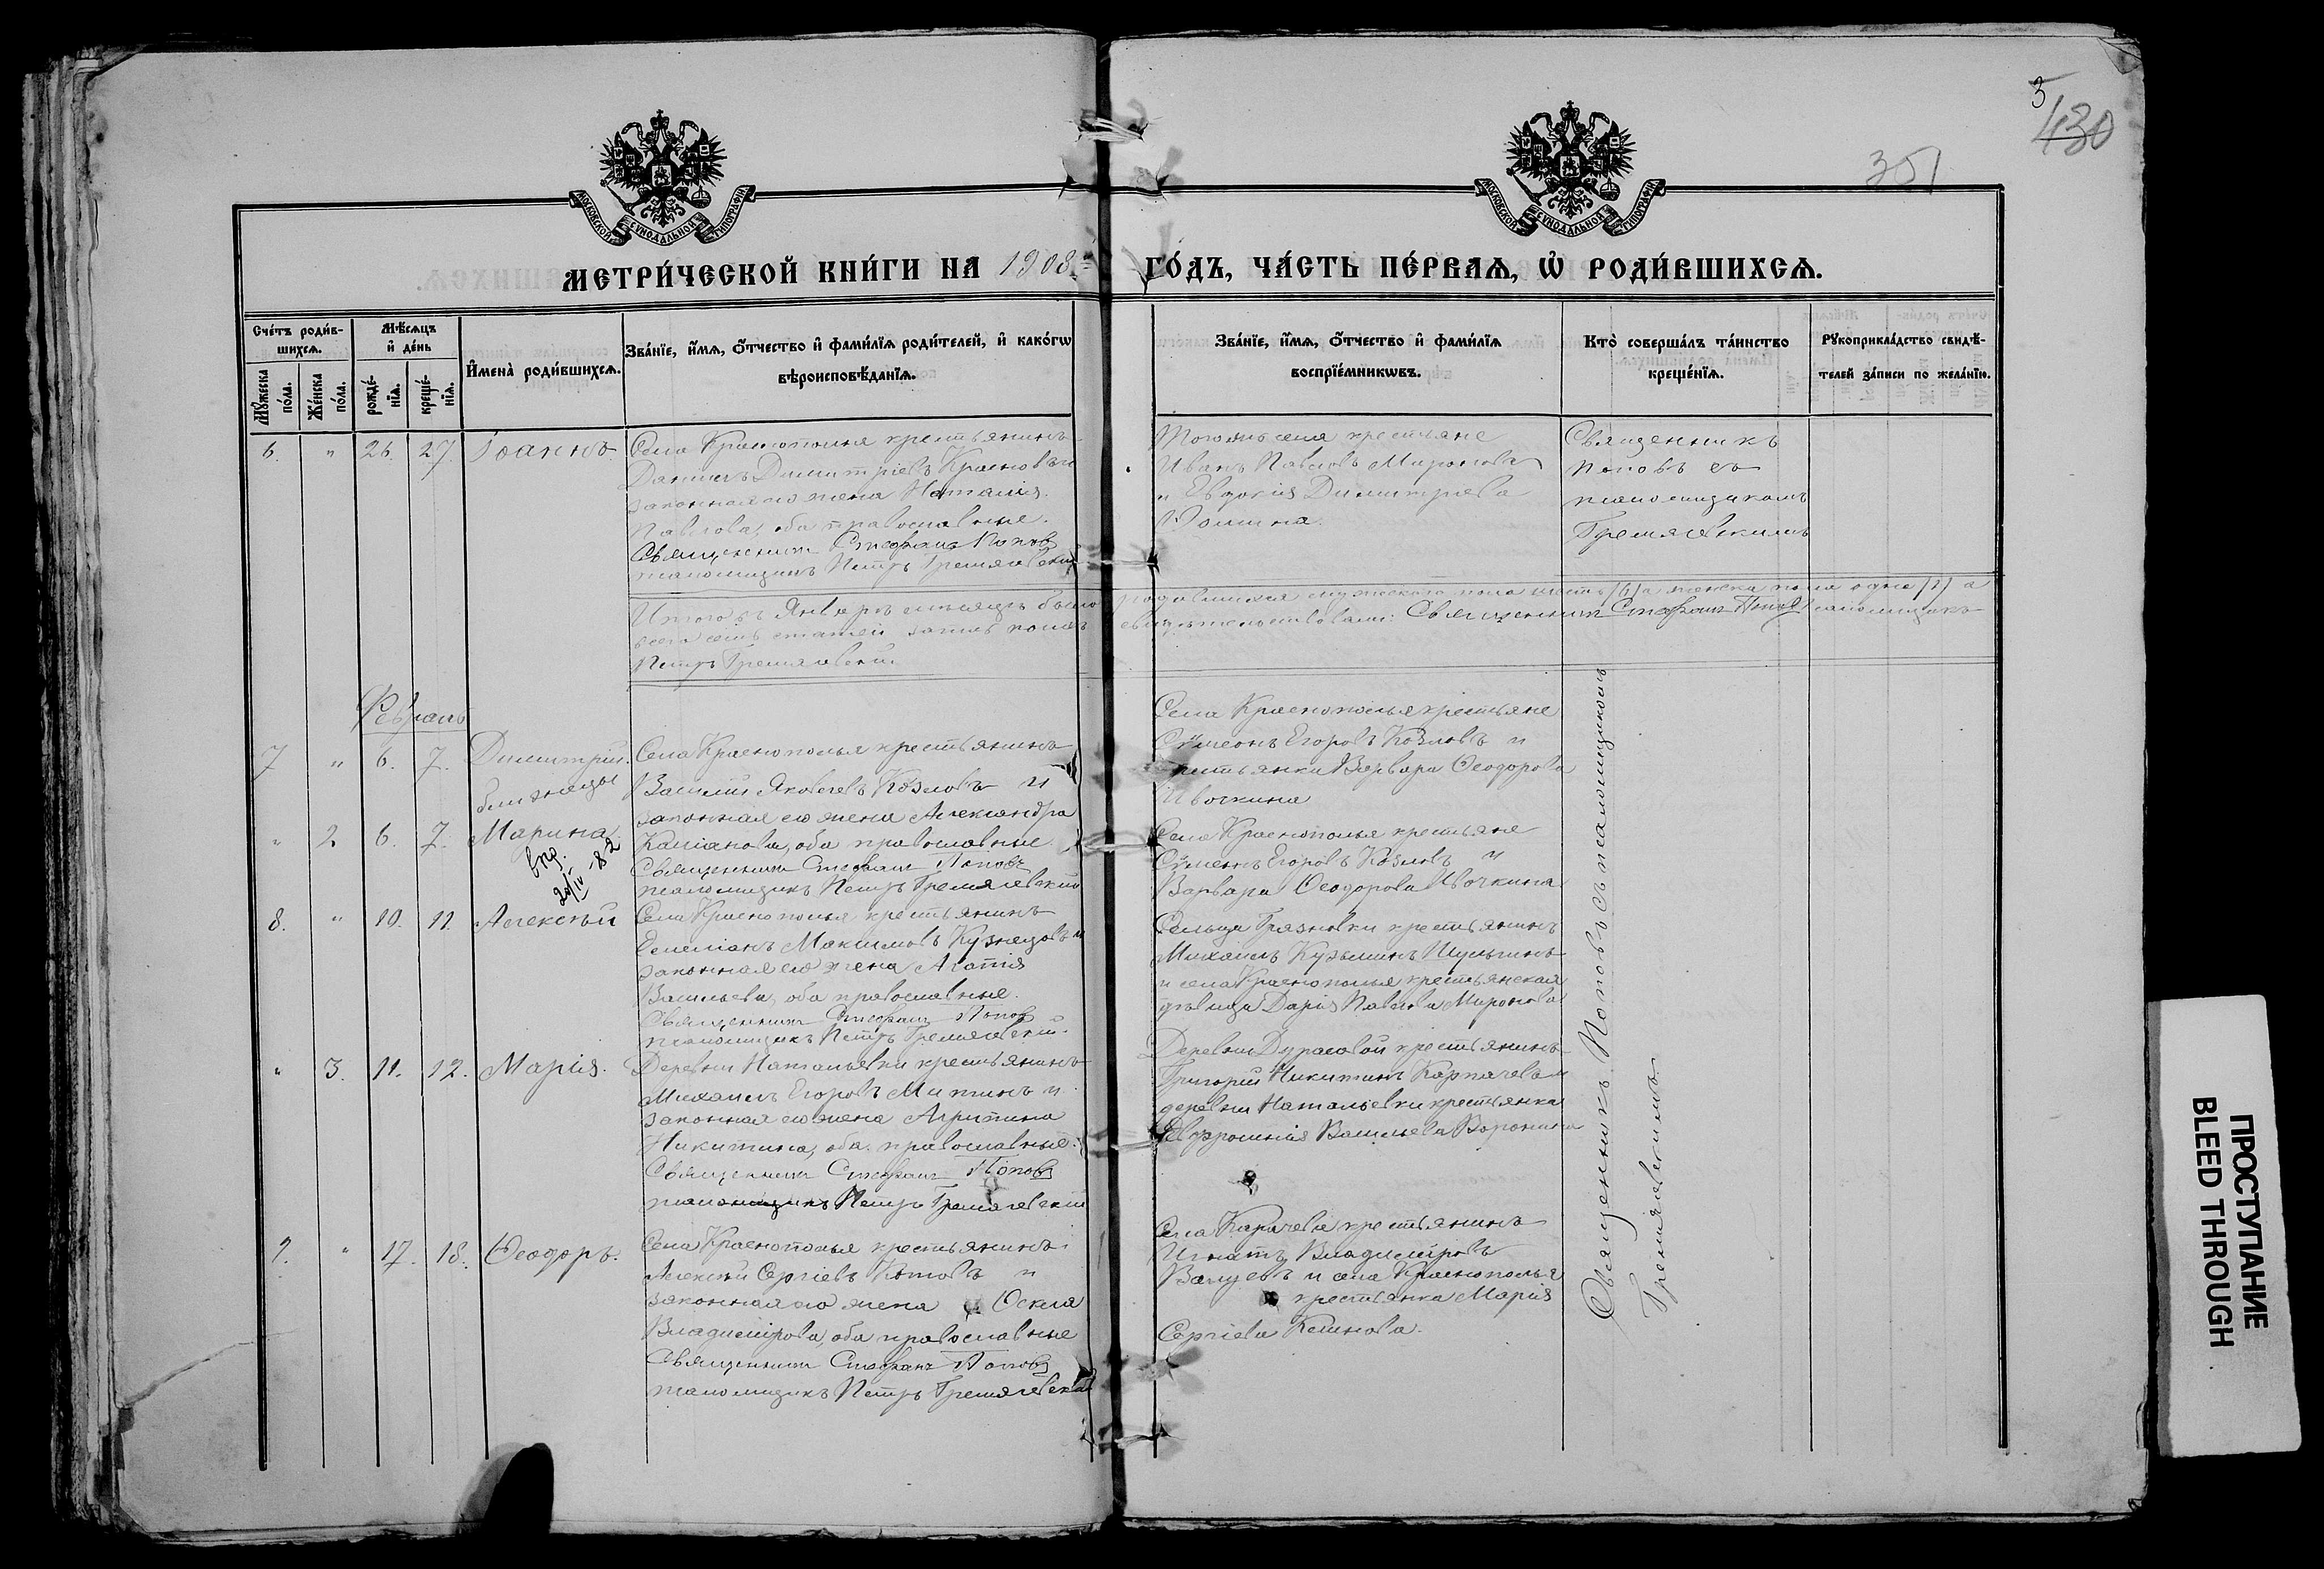 3
430
351
МОСКОВСКОЙ СѴНОДАЛЬНОЙ ТИПОГРАФІИ
МОСКОВСКОЙ СѴНОДАЛЬНОЙ ТИПОГРАФІИ
МЕТРИ́ЧЕСКОЙ КНИ́ГИ НА 1908й ГО́ДЪ, ЧА́СТЬ ПЕ́РВАѦ, Ѡ҆ РОДИ́ВШИХСѦ.
Сче́тъ роди́в-
шихсѧ.
Мꙋ́жеска по́ла.
Же́нска по́ла.
Мѣ́сѧцъ
и҆ де́нь
рожде́-
нїѧ.
креще́-
нїѧ.
И҆мена̀ роди́вшихсѧ.
Зва́нїе, и҆́мѧ, ѻ҆́тчество и҆ фами́лїѧ роди́телей, и҆ како́гѡ
вѣроисповѣ́данїѧ.
Зва́нїе, и҆́мѧ, ѻ҆́тчество и҆ фами́лїѧ
воспрїе́мникѡвъ.
Кто̀ соверша́лъ та́инство
креще́нїѧ.
Рꙋкоприкла́дство свидѣ́-
телей за́писи по жела́нїю.
6. " 26. 27. Іоаннъ
Села Краснополья крестьянинъ
Даніилъ Димитріевъ и
законная его жена Наталія
Павлова, оба православные.
Священникъ Стефанъ Поповъ
псаломщикъ Петръ Гремячевскій
Тогоже села крестьяне
Иванъ Павловъ Мироновъ
и Евдокія Димитріева
Священникъ
Поповъ съ
псаломщикомъ
Гремячевскимъ
Итого въ Январѣ мѣсяцѣ было родившихся мужеска пола шесть /6/ а женска пола одна /1/ а
всего семь статей свидѣтельствовали: Священникъ Стефанъ Поповъ Псаломщикъ
Петръ Гремячевскій.
Февраль
7 " 6. 7. Димитрій.
близнецы
" 2 6. 7. Марина.
впр.
20/IV-82
Села Краснополья крестьянинъ
Василій Яковлевъ Козловъ и
законная его жена Александра
Касіанова, оба православные.
Священникъ Стефанъ Поповъ
псаломщикъ Петръ Гремячевскій
Села Краснополья крестьяне
Сѵмеонъ Егоровъ Козловъ и
крестьянка Варвара Ѳеодорова
Ивочкина
Села Краснополья крестьяне
Сѵмеонъ Егоровъ Козловъ и
Варвара Ѳеодорова Ивочкина
8. " 10. 11. Алексѣй
Села Краснополья крестьянинъ
Емеліанъ Максимовъ Кузнецовъ и
законная его жена Агапія
Васильева, оба православные.
Священникъ Стефанъ Поповъ
псаломщикъ Петръ Гремячевскій.
Сельца Грязновки крестьянинъ
Михаилъ Кузьминъ Шульгинъ
и села Краснополья крестьянская
дѣвица Дарія Павлова Миронова
" 3. 11. 12. Марія.
Деревни Натальевки крестьянинъ
Михаилъ Егоровъ Митинъ и
законная его жена Агрипина
Никитина, оба православные.
Священникъ Стефанъ Поповъ
псаломщикъ Петръ Гремячевскій
Деревни Дурасовой крестьянинъ
Григорій Никитинъ Карпачевъ и
деревни Натальевки крестьянка
Евфросинія Васильева Воронина
9. " 17. 18. Ѳеодоръ.
Села Краснополья крестьянинъ
Алексѣй Сергіевъ Котовъ и
законная его жена Ѳекла
Владимірова, оба православные
Священникъ Стефанъ Поповъ
псаломщикъ Петръ Гремячевскій
Села Карачева крестьянинъ
Игнатъ Владиміровъ
и села Краснополья
крестьянка Марія
Сергіева
Священникъ Поповъ съ псаломщикомъ
Гремячевскимъ.
ПРОСТУПАНИЕ
BLEED THROUGH